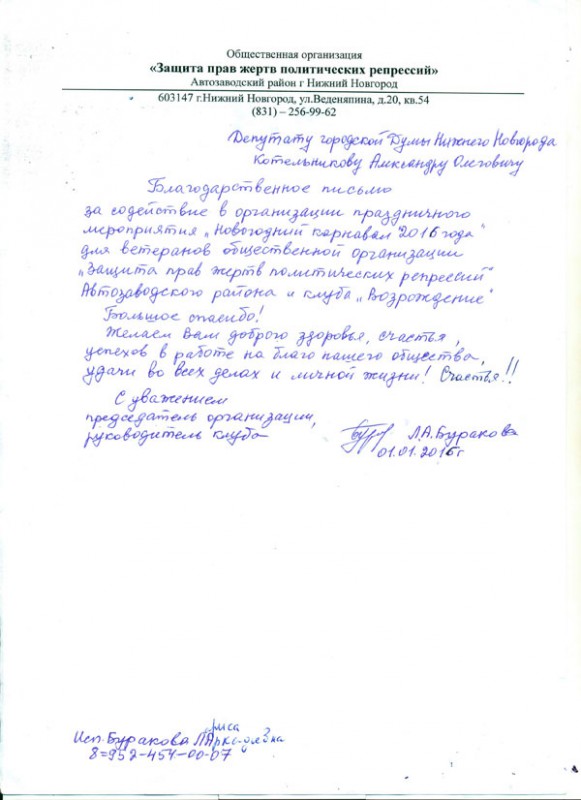 Общественная организация
«Защита прав жертв политических репрессий»
Автозаводский район г Нижний Новгород
603147 г.Нижний Новгород, ул.Веденяпина, д.20, кв.54
(831) – 256-99-62
Депутату городской Думы Нижнего Новгорода
Котельникову Александру Олеговичу
Благодарственное письмо
за содействие в организации праздничного
мероприятия „Новогодний карнавал 2016 года"
для ветеранов общественной организации
„Защита прав жертв политических репрессий"
Автозаводского района и клуба „Возрождение"
Большое спасибо!
Желаем Вам доброго здоровья, счастья,
успехов в работе на благо нашего общества,
удачи во всех делах и личной жизни! Счастья!!
С уважением
председатель организации,
руководитель клуба
Л.А.Буракова
01.01.2016г
Исп. Буракова
8=952-454-00-07